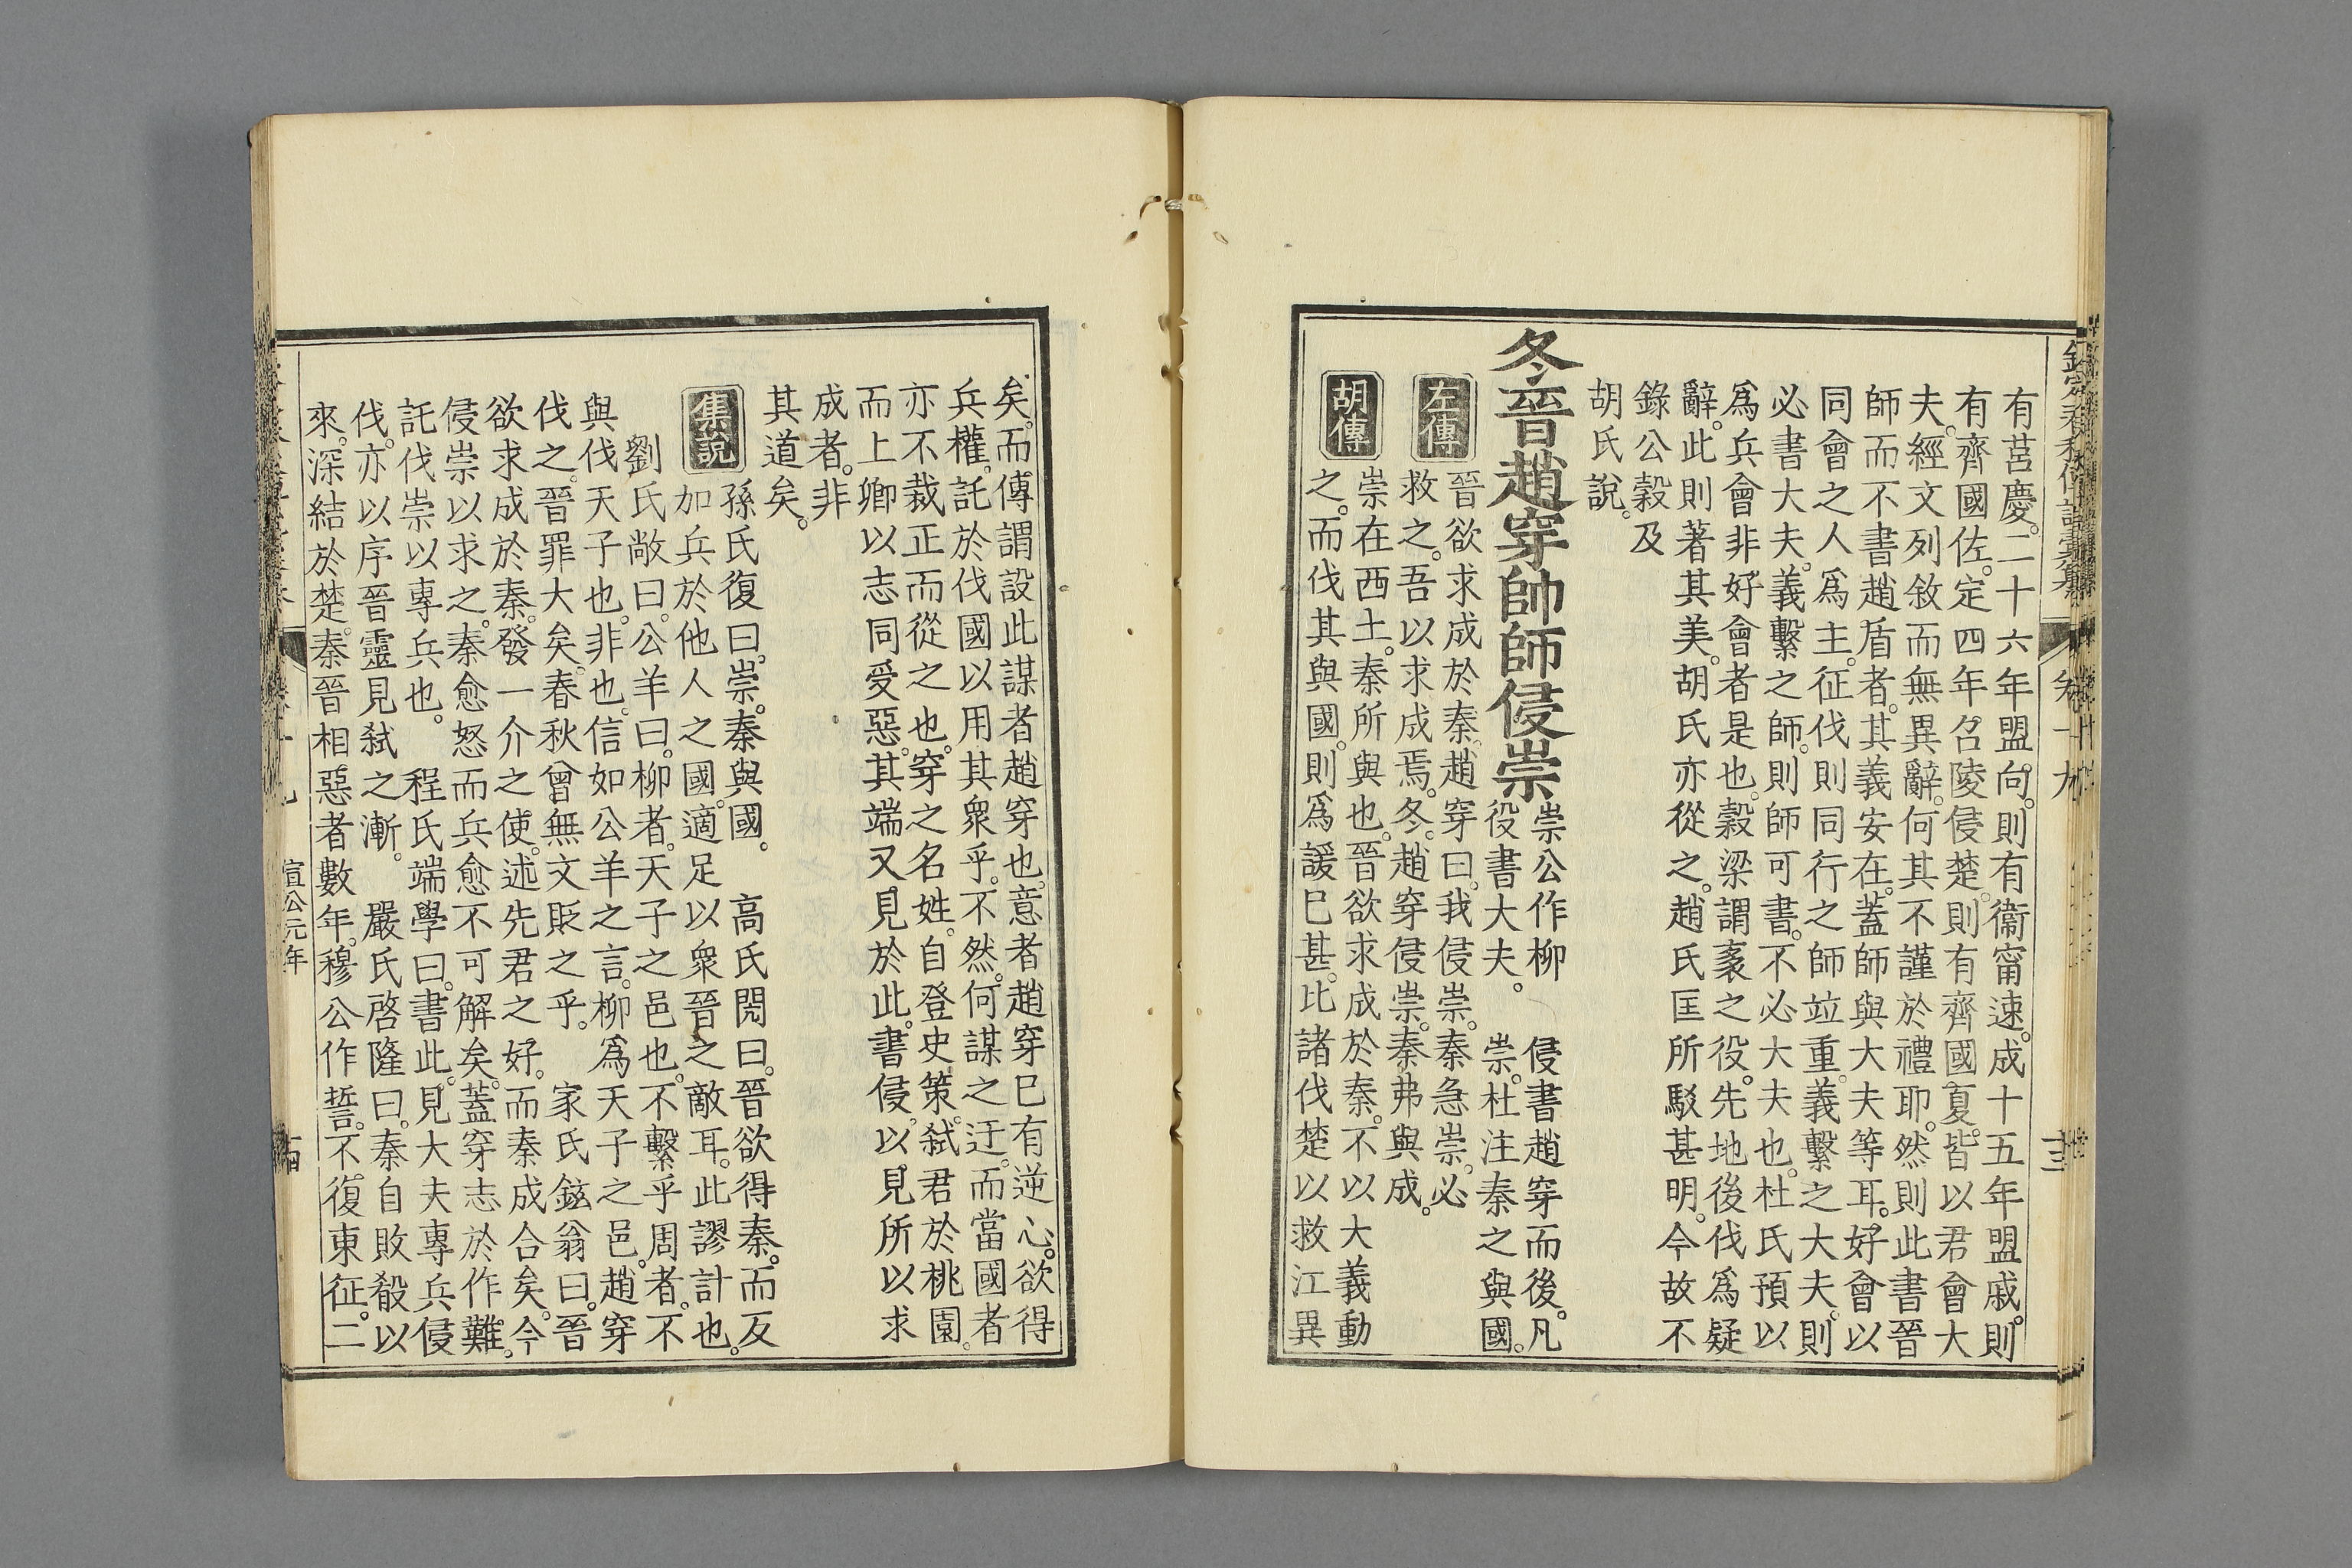 有莒慶。二十六年盟向。則有衞甯速。成十五年盟戚。則
有齊國佐。定四年召陵侵楚。則有齊國夏。皆以君會大
夫。經文列敘而無異辭。何其不謹於禮耶。然則此書晉
師而不書趙盾者。其義安在。蓋師與大夫等耳。好會以
同會之人爲主。征伐則同行之師竝重。義繫之大夫。則
必書大夫。義繫之師。則師可書。不必大夫也。杜氏預以
爲兵會非好會者是也。穀梁謂袤之役。先地後伐爲疑
辭。此則著其美。胡氏亦從之。趙氏匡所駁甚明。今故不
錄公穀及
胡氏說。
冬晉趙穿帥師侵崇
崇公作柳 侵書趙穿而後。凡
役書大夫。 崇。杜注秦之與國。
左傳
晉欲求成於秦。趙穿曰。我侵崇。秦急崇。必
救之。吾以求成焉。冬。趙穿侵崇。秦弗與成。
胡傳
崇在西土。秦所與也。晉欲求成於秦。不以大義動
之。而伐其與國。則爲諼已甚。比諸伐楚以救江異
矣。而傳謂設此謀者趙穿也。意者趙穿已有逆心。欲得
兵權。託於伐國以用其衆乎。不然。何謀之迂。而當國者
亦不裁正而從之也。穿之名姓。自登史策。弑君於桃園。
而上卿以志同受惡。其端又見於此。書侵。以見所以求
成者。非
其道矣。
集說
孫氏復曰。崇。秦與國。 高氏閌曰。晉欲得秦。而反
加兵於他人之國。適足以衆晉之敵耳。此謬計也。
劉氏敞曰。公羊曰。柳者。天子之邑也。不繫乎周者。不
與伐天子也。非也。信如公羊之言。柳爲天子之邑。趙穿
伐之。晉罪大矣。春秋曾無文貶之乎。 家氏鉉翁曰。晉
欲求成於秦。發一介之使。述先君之好。而秦成合矣。今
侵崇以求之。秦愈怒而兵愈不可解矣。蓋穿志於作難。
託伐崇以專兵也。 程氏端學曰。書此。見大夫專兵侵
伐。亦以序晉靈見弑之漸。 嚴氏啓隆曰。秦自敗殽以
來。深結於楚。秦晉相惡者數年。穆公作誓。不復東征。二
宣公元年